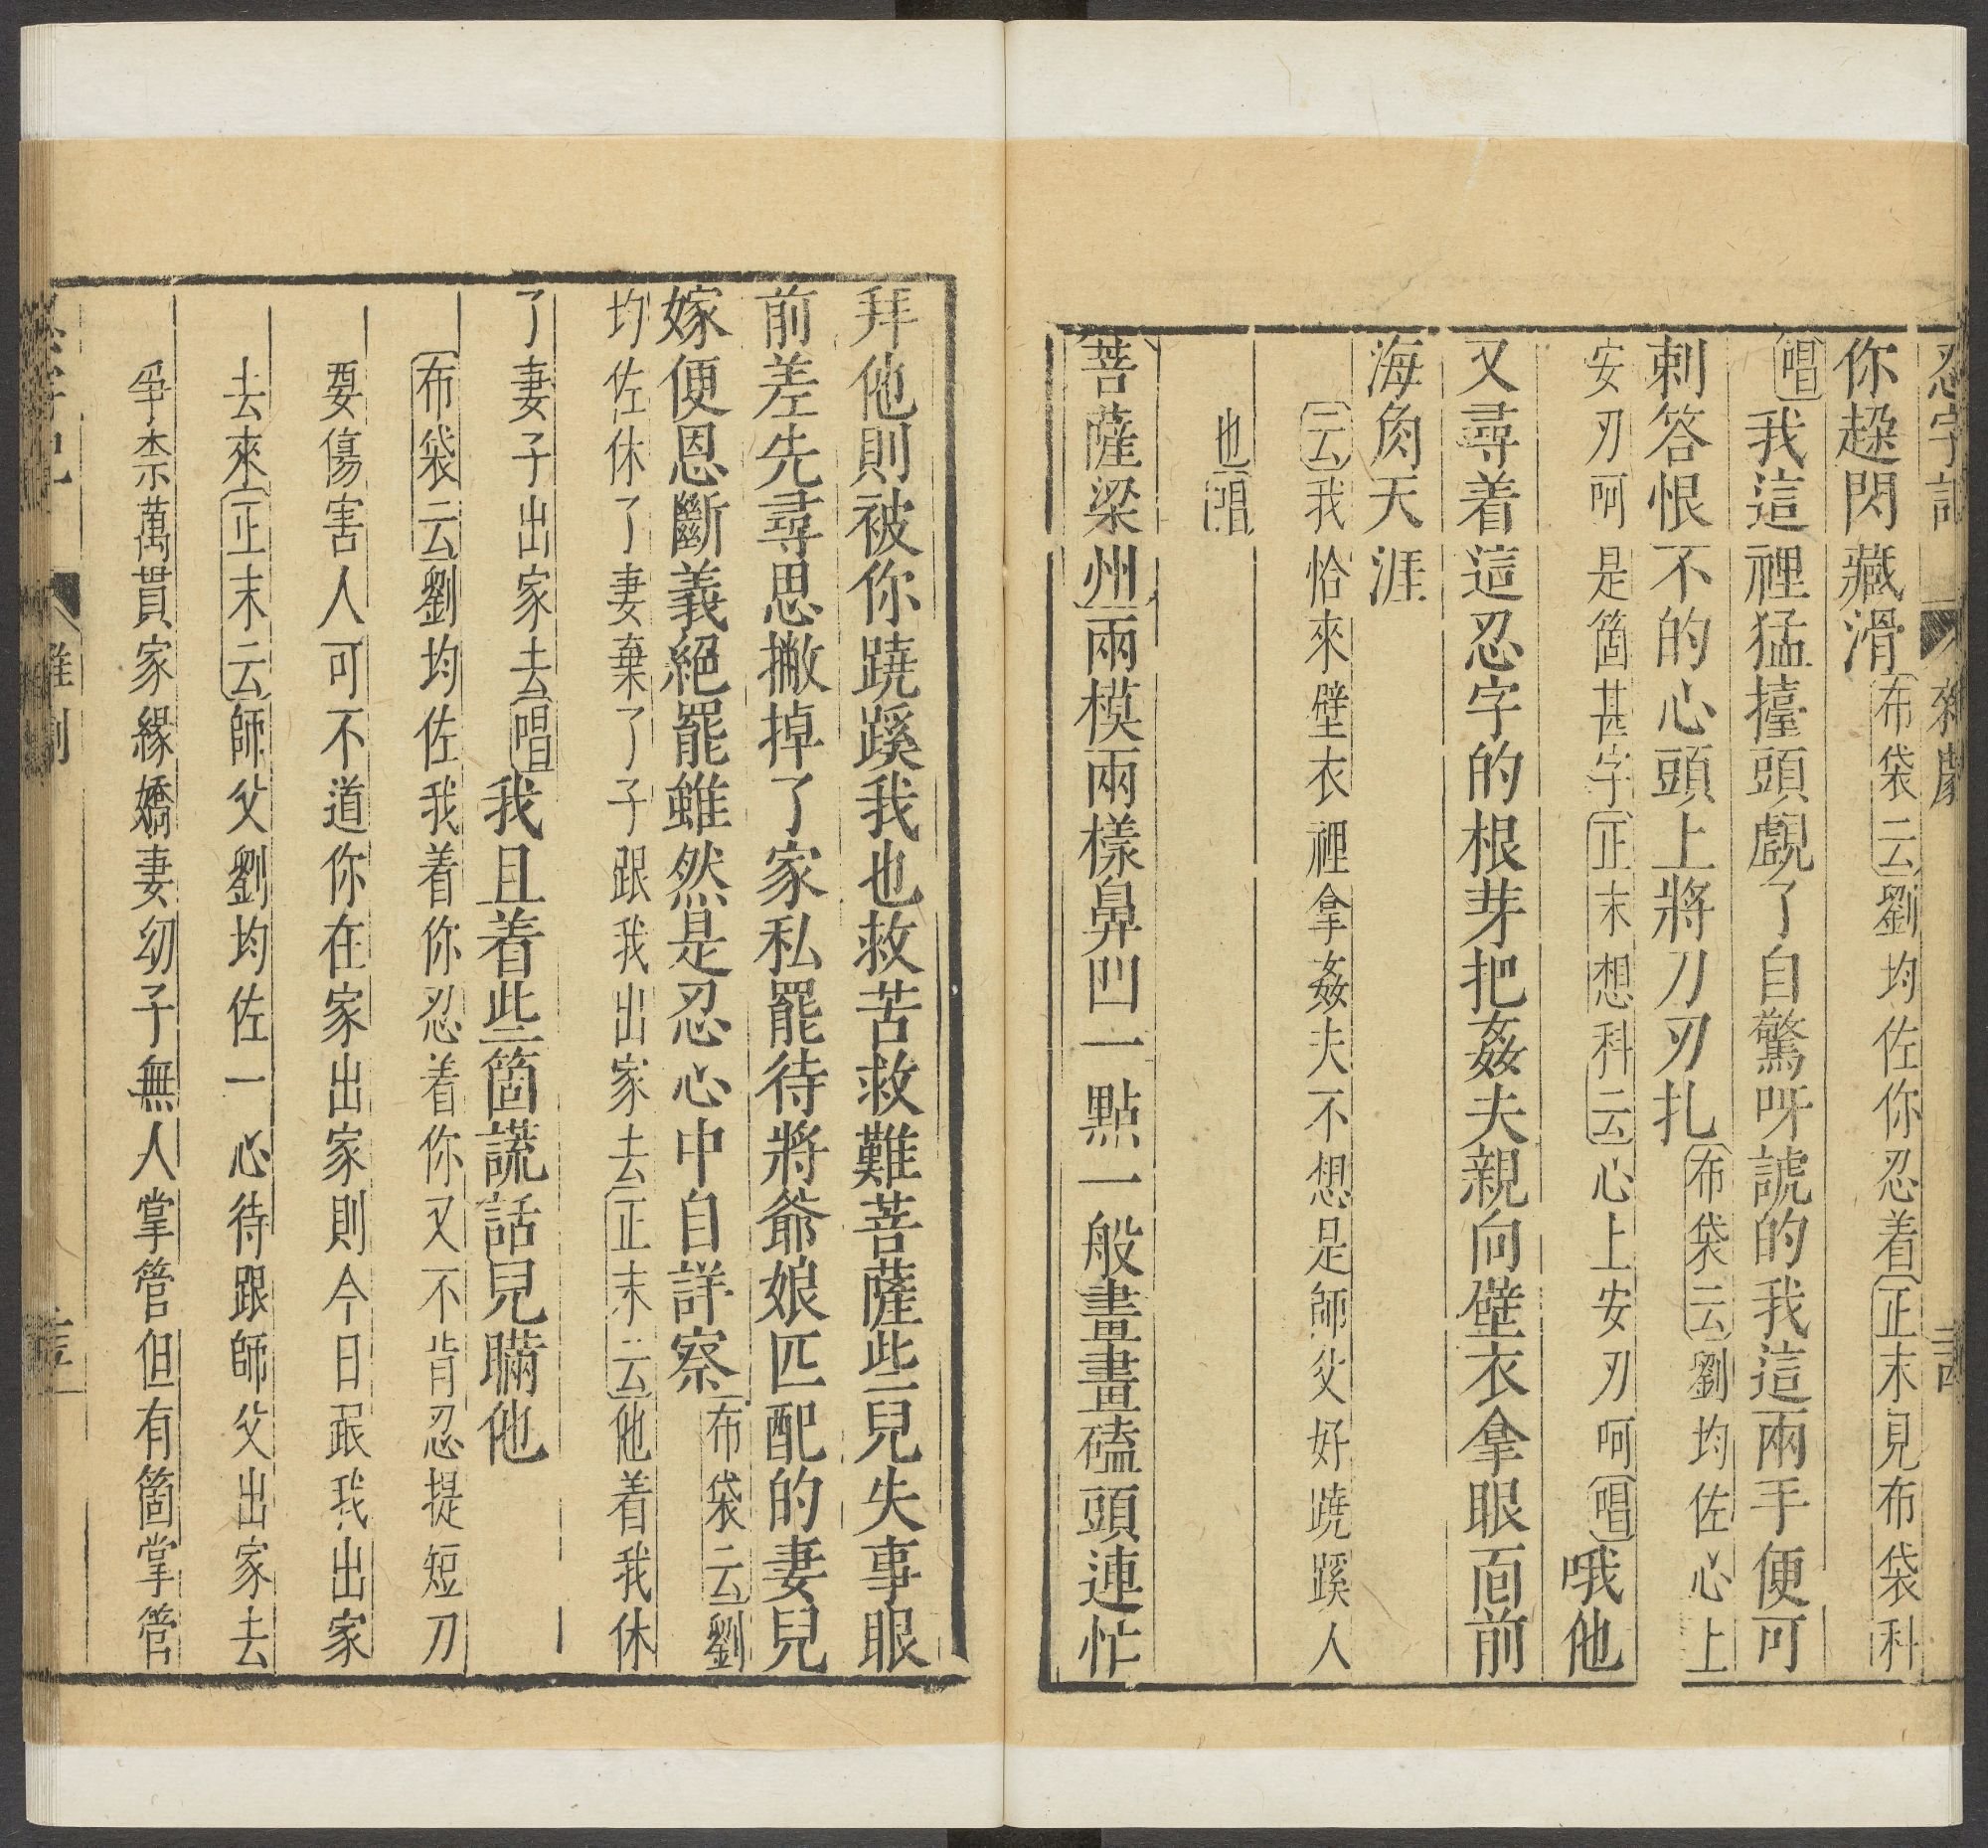 忍字記
雜劇
你趓閃藏滑布袋云劉均佐你忍着正末見布袋科
唱我這裡猛擡頭覷了自驚呀諕的我這兩手便可
刺答恨不的心頭上將刀刃扎布袋云劉均佐心上
安刃呵是箇甚字正末想科云心上安刃呵唱哦他
又尋着這忍字的根芽把姦夫親向壁衣拿眼面前
海角天涯
云我恰來壁衣裡拿姦夫不想是師父好蹺蹊人
也唱
菩薩梁州兩模兩樣鼻凹一點一般畫畫磕頭連忙
拜他則被你蹺蹊我也救苦救難菩薩些兒失事眼
前差先尋思撇掉了家私罷待將爺娘匹配的妻兒
嫁便恩斷義絕罷雖然是忍心中自詳察布袋云劉
均佐休了妻棄了子跟我出家去正末云他着我休
了妻子出家去唱我且着些箇謊話兒瞞他
布袋云劉均佐我着你忍着你又不肯忍提短刀
要傷害人可不道你在家出家則今日跟我出家
去來正末云師父劉均佐一心待跟師父出家去
爭柰萬貫家緣嬌妻幼子無人掌管但有箇掌管